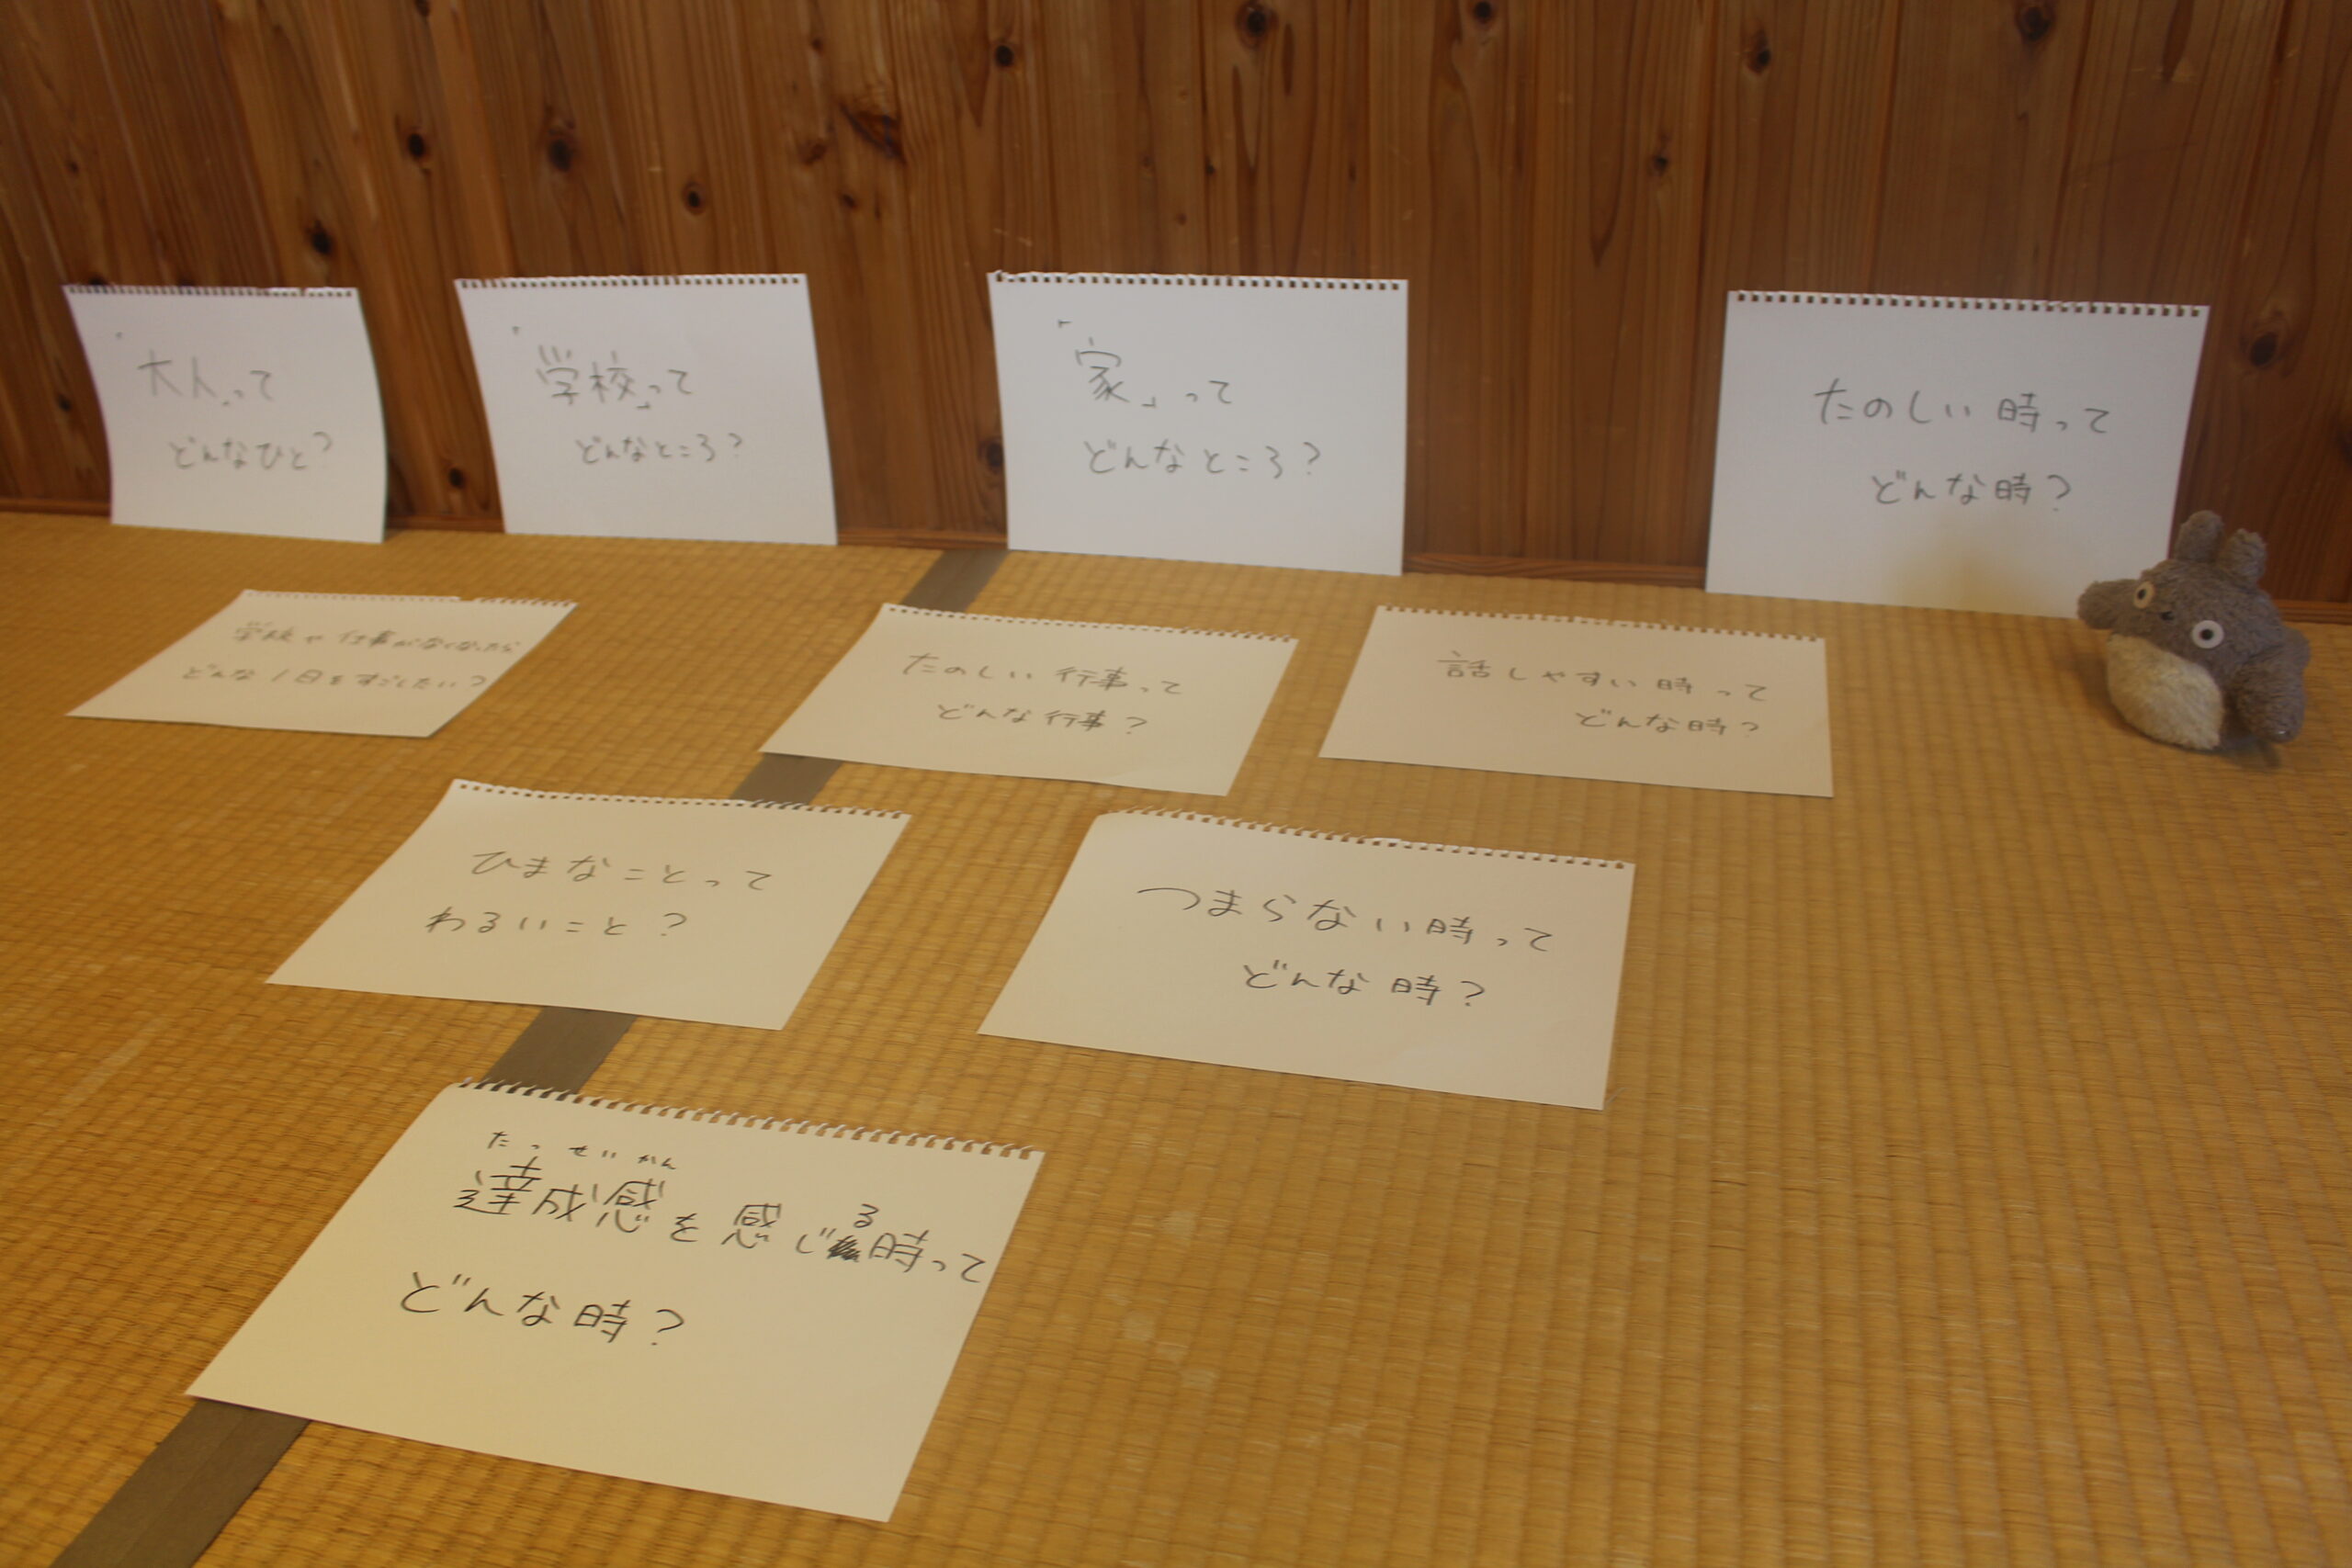 「大人」って
どんなひと?
「学校」って
どんなところ?
「家」って
どんなところ?
たのしい時って
どんな時?
学校や仕事がなくなったら
どんな1日をすごしたい?
たのしい行事って
どんな行事?
話しやすい時って
どんな時?
ひまなことって
わるいこと?
つまらない時って
どんな時?
たっせいかん
達成感を感じる時って
どんな時?